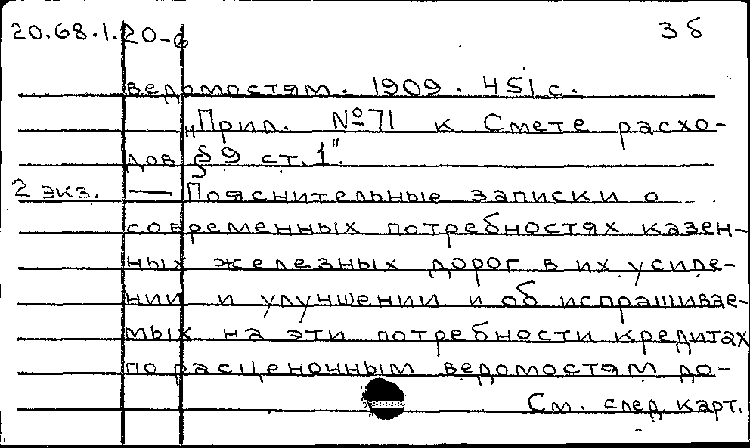 20.68.1.20-6 3б
ведомостям. 1909. 451 с.
„Прил. №71 к Смете расхо-
дов § 9 ст. 1".
2 экз. — Пояснительные записки о
современных потребностях казен-
ных железных дорог в их усиле-
нии и улучшении и об испрашивае-
мых на эти потребности кредитах
по расценочным ведомостям до-
См. след. карт.